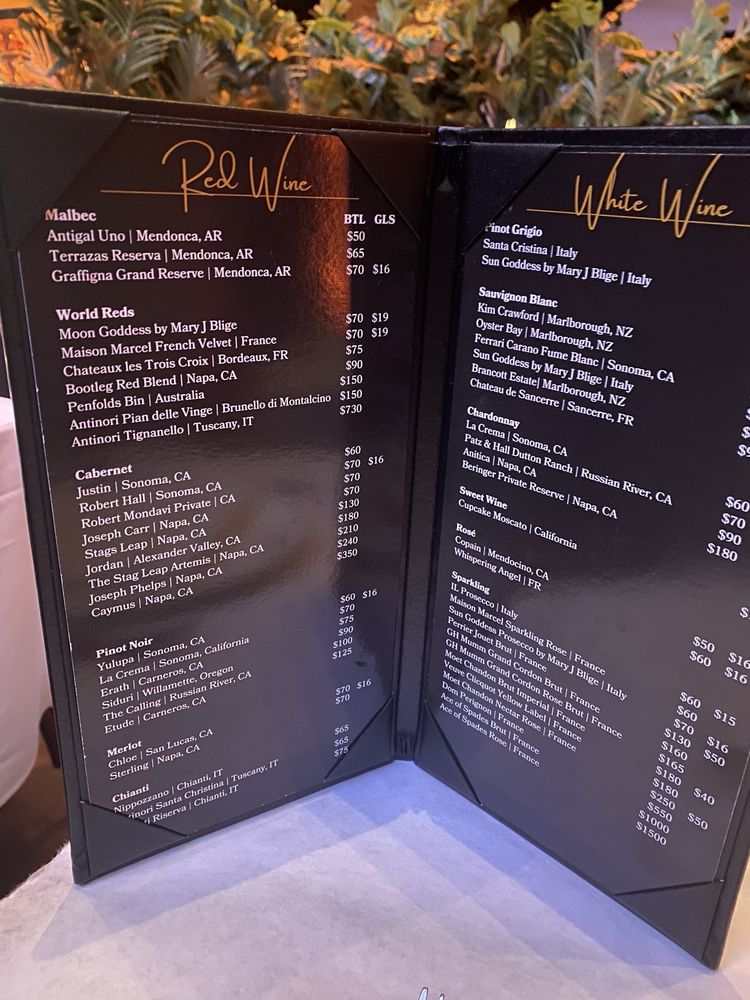 Red Wine
Malbec BTL GLS
Antigal Uno | Mendonca, AR $50
Terrazas Reserva | Mendonca, AR $65
Graffigna Grand Reserve | Mendonca, AR $70 $16
World Reds
Moon Goddess by Mary J Blige $70 $19
Maison Marcel French Velvet | France $70 $19
Chateaux les Trois Croix | Bordeaux, FR $75
Bootleg Red Blend | Napa, CA $90
Penfolds Bin | Australia $150
Antinori Pian delle Vinge | Brunello di Montalcino $150
Antinori Tignanello | Tuscany, IT $730
Cabernet
Justin | Sonoma, CA $60
Robert Hall | Sonoma, CA $70 $16
Robert Mondavi Private | CA $70
Joseph Carr | Napa, CA $70
Stags Leap | Napa, CA $130
Jordan | Alexander Valley, CA $180
The Stag Leap Artemis | Napa, CA $210
Joseph Phelps | Napa, CA $240
Caymus | Napa, CA $350
Pinot Noir
Yulupa | Sonoma, CA $60 $16
La Crema | Sonoma, California $70
Erath | Carneros, CA $75
Siduri | Willamette, Oregon $90
The Calling | Russian River, CA $100
Etude | Carneros, CA $125
Merlot
Chloe | San Lucas, CA $70 $16
Sterling | Napa, CA $70
Chianti
Nippozzano | Chianti, IT $65
Santa Christina | Tuscany, IT $65
Riserva | Chianti, IT $75
White Wine
Pinot Grigio
Santa Cristina | Italy
Sun Goddess by Mary J Blige | Italy
Sauvignon Blanc
Kim Crawford | Marlborough, NZ
Oyster Bay | Marlborough, NZ
Ferrari Carano Fume Blanc | Sonoma, CA
Sun Goddess by Mary J Blige | Italy
Brancott Estate| Marlborough, NZ
Chateau de Sancerre | Sancerre, FR
Chardonnay
La Crema | Sonoma, CA $60
Patz & Hall Dutton Ranch | Russian River, CA $70
Anitica | Napa, CA $90
Beringer Private Reserve | Napa, CA $180
Sweet Wine
Cupcake Moscato | California
Rosé
Copain | Mendocino, CA $50 $16
Whispering Angel | FR $60 $16
Sparkling
IL Prosecco | Italy $60 $15
Maison Marcel Sparkling Rose | France $60
Sun Goddess Prosecco by Mary J Blige | Italy $70 $16
Perrier Jouet Brut | France $130 $50
GH Mumm Grand Cordon | France $160
GH Mumm Grand Cordon Rose Brut | France $165
Moet Chandon Brut Imperial | France $180 $40
Veuve Clicquot Yellow Label | France $180
Moet Chandon Nectar Rose | France $250 $50
Dom Perignon | France $550
Ace of Spades Brut | France $1000
Ace of Spades Rose | France $1500